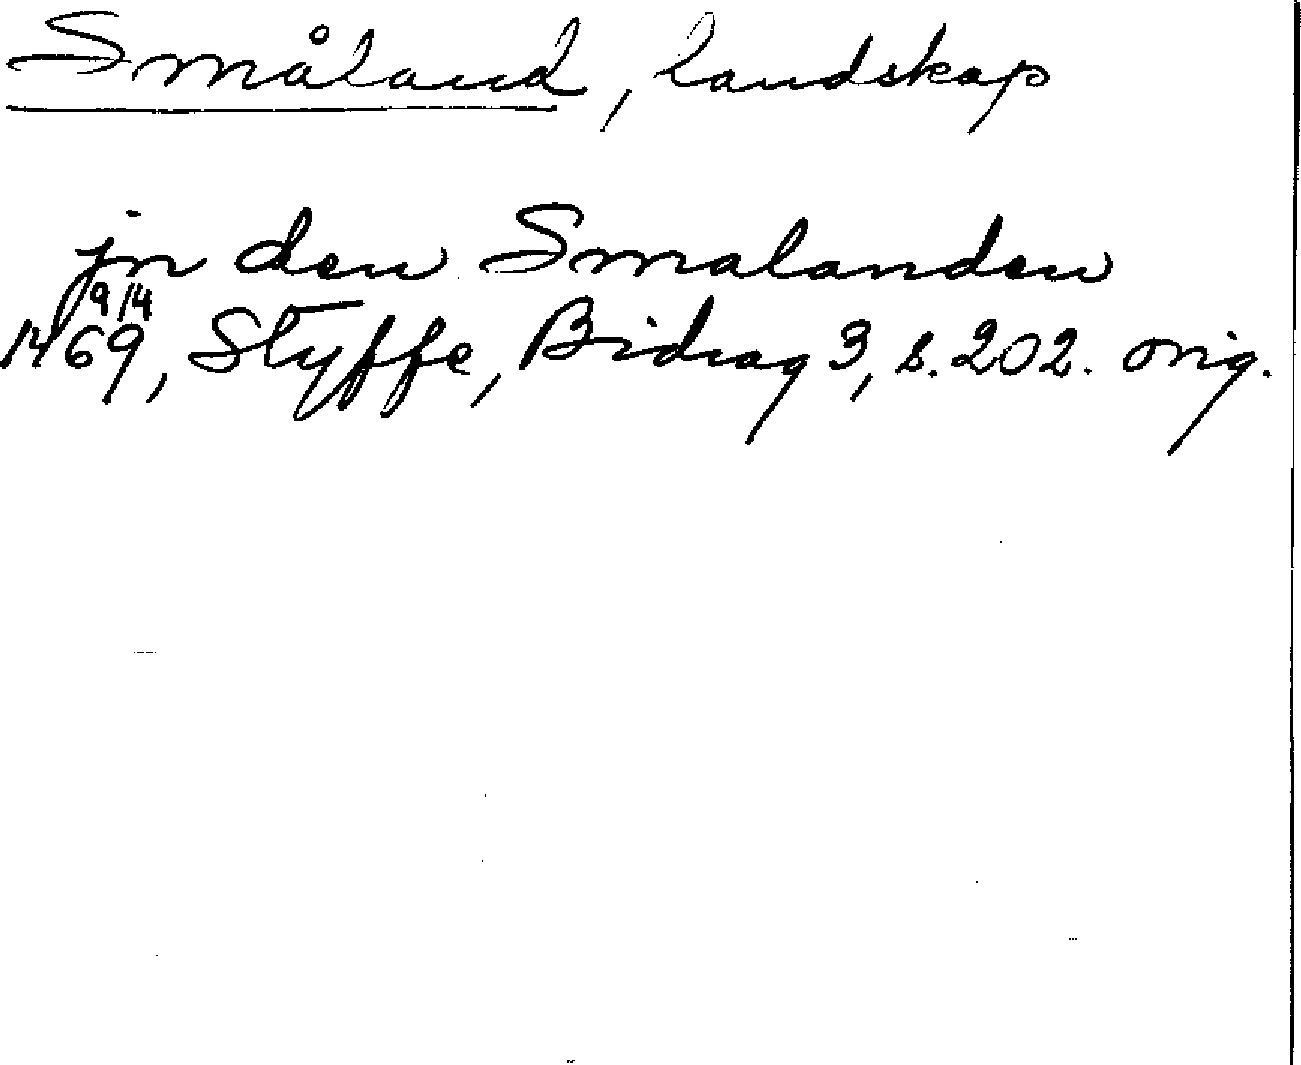 Småland, landskap
jn den Smalanden
1469 9/4, Styffe, Bidrag 3, s. 202. orig.